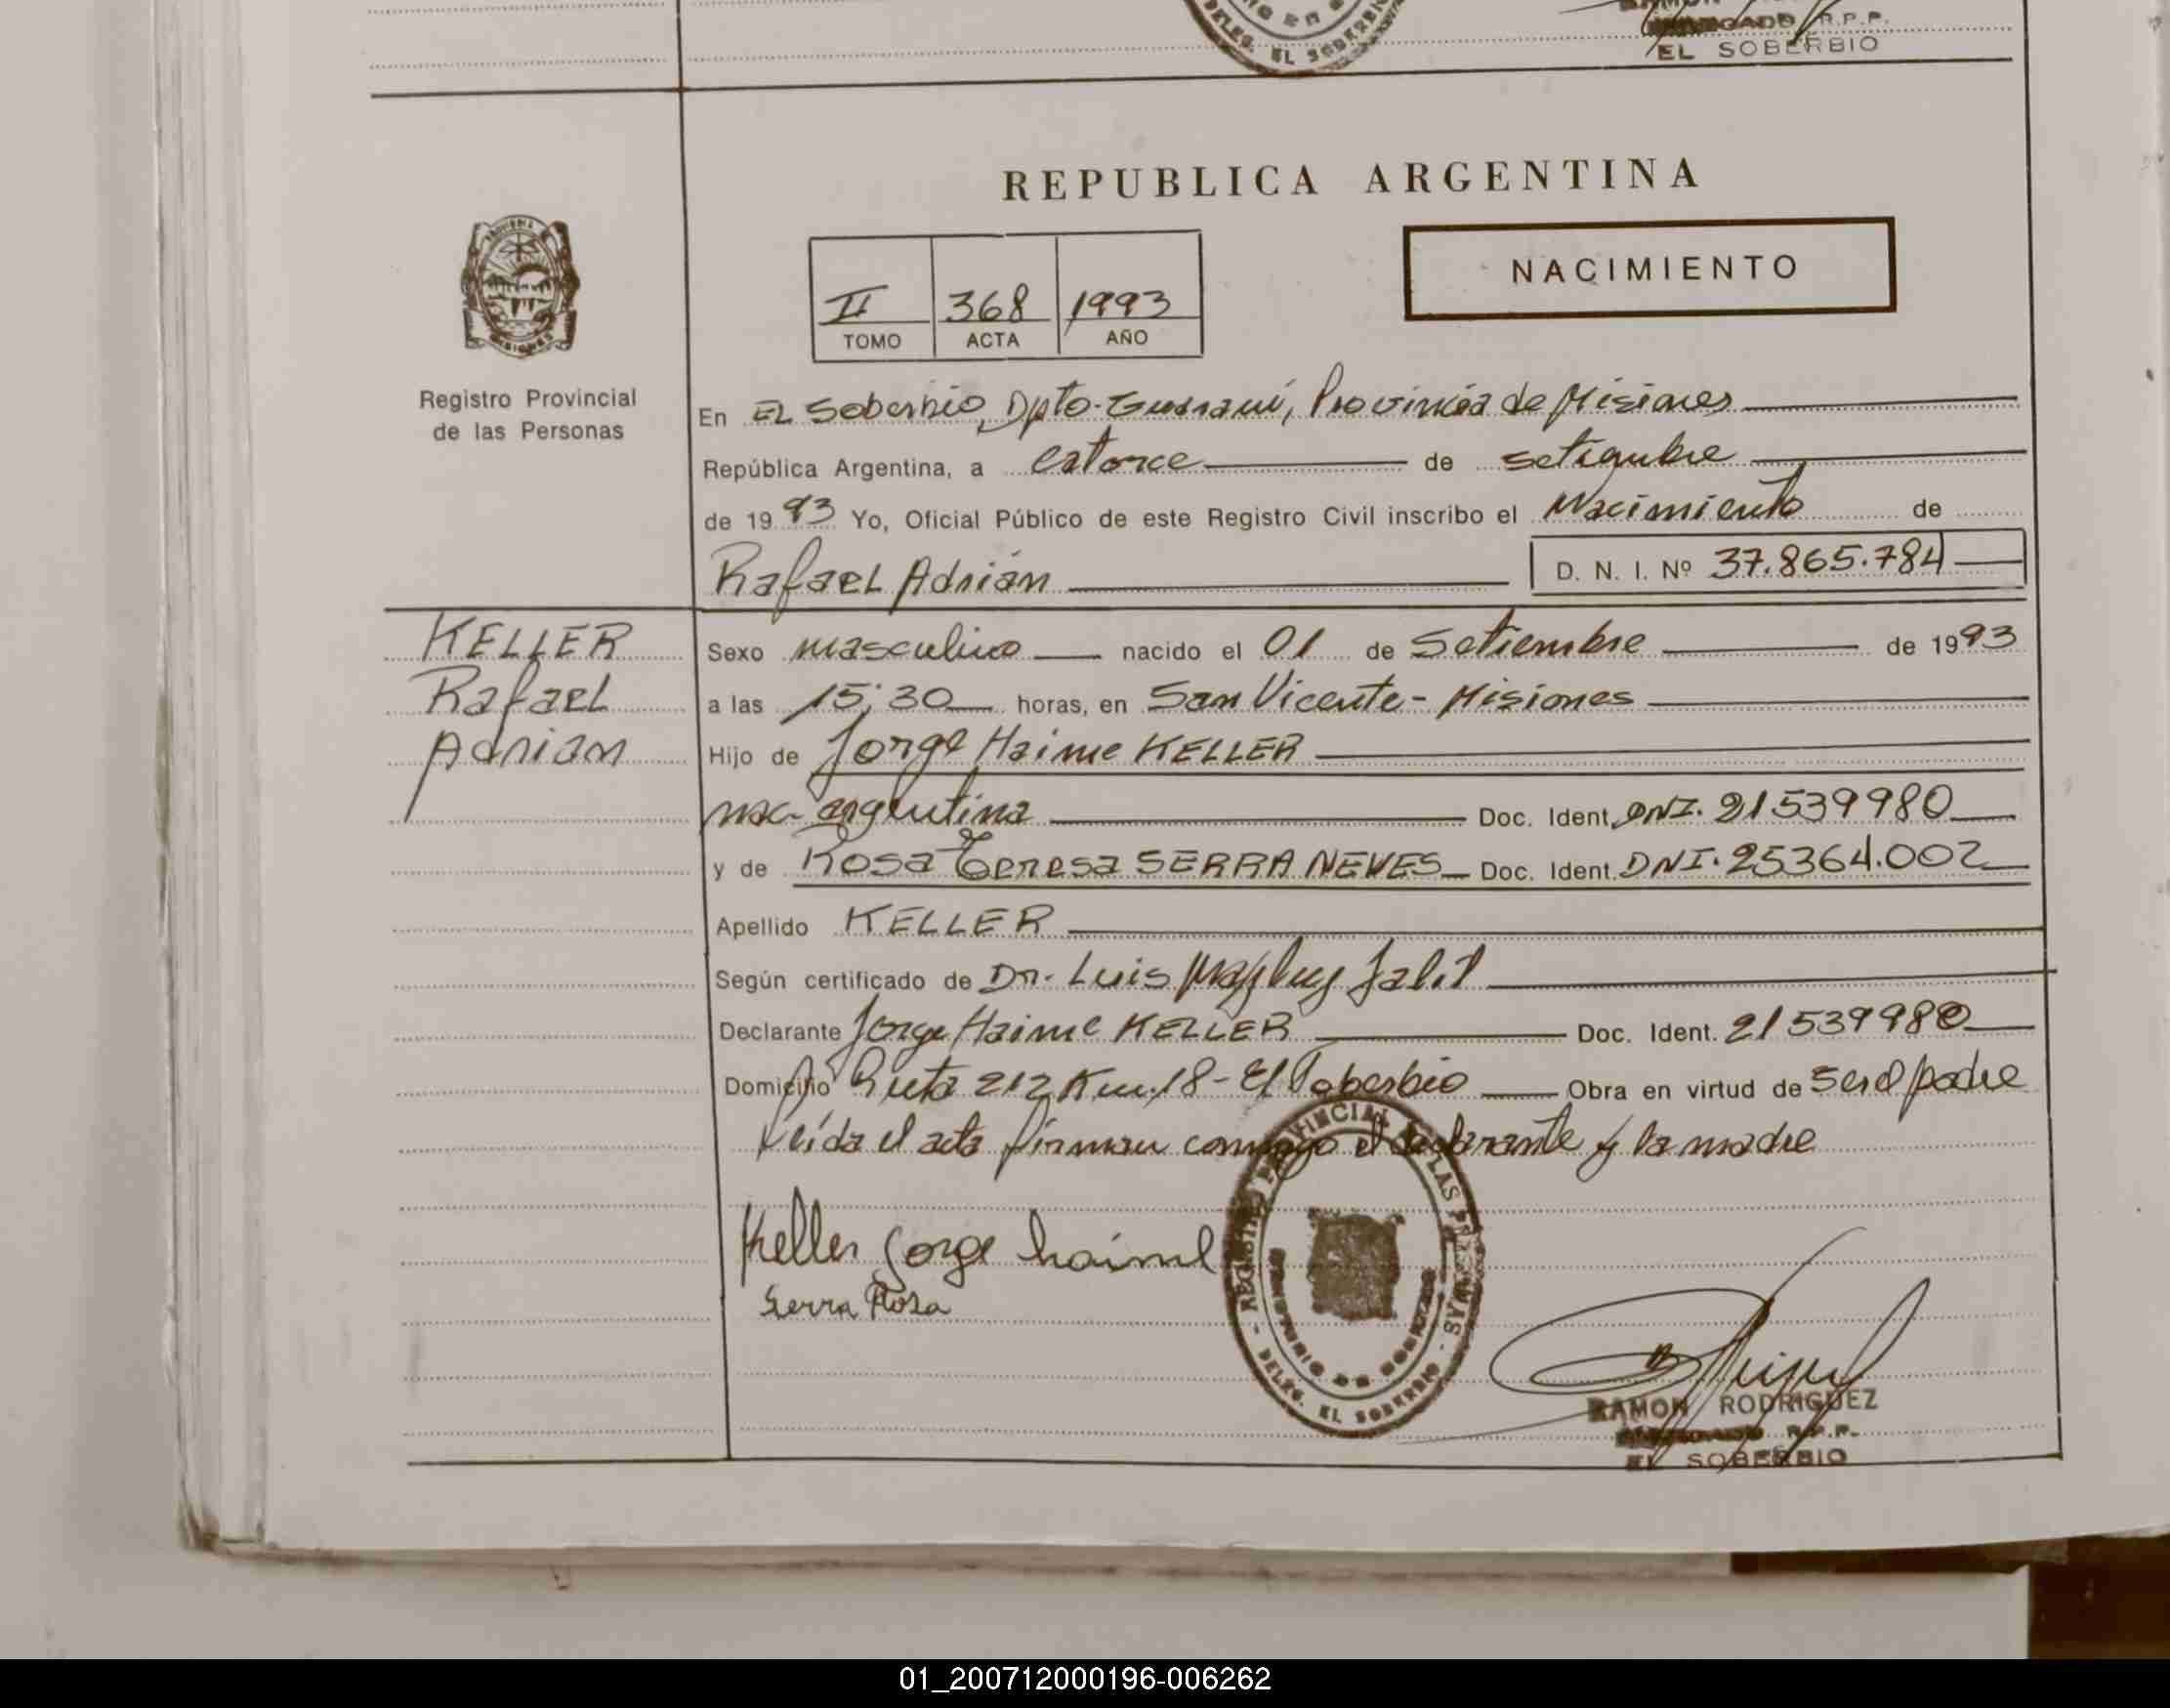 DELEG. EL SOBERBIO
R.P.P.
EL SOBERBIO
REPUBLICA ARGENTINA
NACIMIENTO
II 368 1993
TOMO ACTA AÑO
Registro Provincial
de las Personas
En EL Soberbio, Dpto-Guaraní, Provincia de Misiones
República Argentina, a catorce de setiembre
de 1993 Yo, Oficial Público de este Registro Civil inscribo el Nacimiento de
Rafael Adrián D. N. I. Nº 37.865.784
KELLER
Rafael
Adrian
Sexo masculino nacido el 01 de Setiembre de 1993
a las 15:30 horas, en San Vicente - Misiones
Hijo de Jorge Haime KELLER
nac. argentina Doc. Ident. DNI. 21539980
y de Rosa Teresa SERRA NEVES Doc. Ident. DNI. 25364.002
Apellido KELLER
Según certificado de Dr. Luis Jalil
Declarante Jorge Haime KELLER Doc. Ident. 21539980
Domicilio Ruta 212 Km. 18 - El Soberbio Obra en virtud de Ser el padre
Leída el acta firman conmigo el declarante y la madre
Keller Jorge haime
Serra Rosa
REGISTRO PROVINCIAL DE LAS PERSONAS
- DELEG. EL SOBERBIO -
RAMON RODRIGUEZ
R.P.P.
EL SOBERBIO
01_200712000196-006262